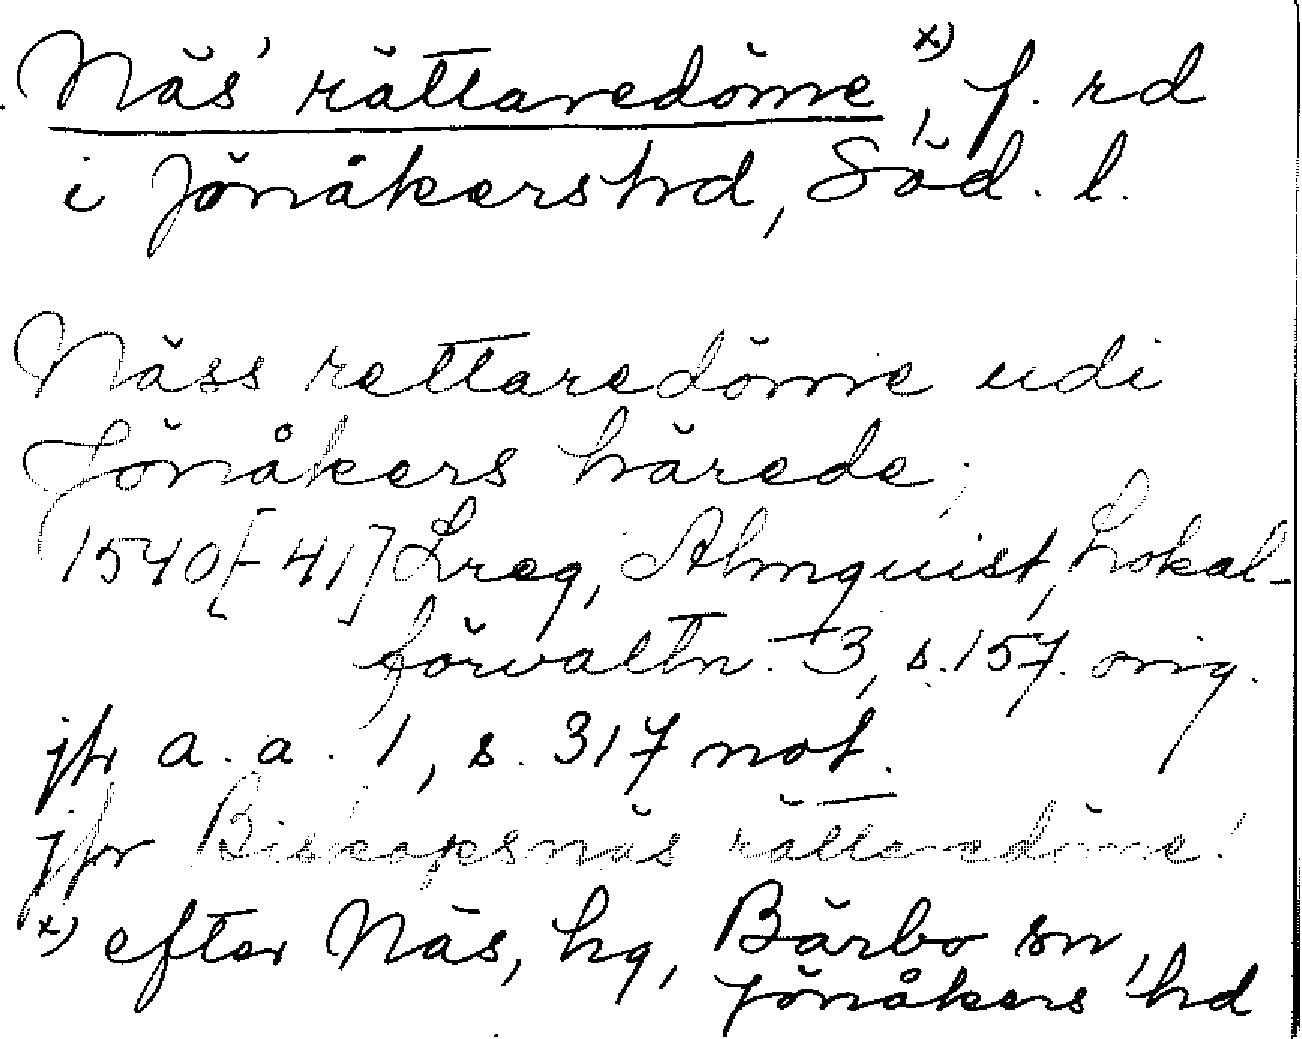 Näs' rättaredöme x), f. rd
i Jönåkers hd, Söd. l.
Näss rettaredöme udi
Jönåkers härede;
1540[-41] Lreg, Almquist, Lokal-
förvaltn. 3, s. 157. orig.
jfr a. a. 1, s. 317 not.
jfr Biskopsnäs rättaredöme!
x) efter Näs, hg, Bärbo sn,
Jönåkers hd